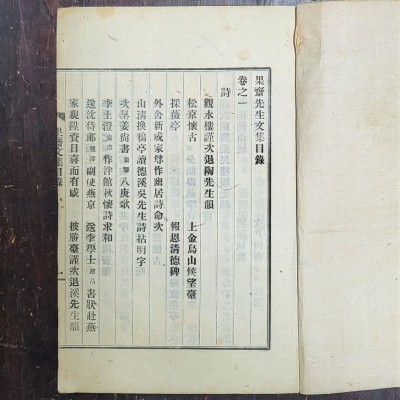 果齋先生文集目錄
卷之一
詩
觀水樓謹次退陶先生韻
松京懷古 上金烏山候望臺
採薇亭 報恩淸德碑
外舍新成家尊作幽居詩命次
山淸換鵝亭讀德溪吳先生詩拈明字
次呂姜尙書 八庚歌
李上澄 作泮館秋懷詩求和
送沈侍郞 副使燕京 送李學士 書狀赴燕
家親陞資日喜而有感 披勝臺謹次退溪先生韻
果齋文集目錄